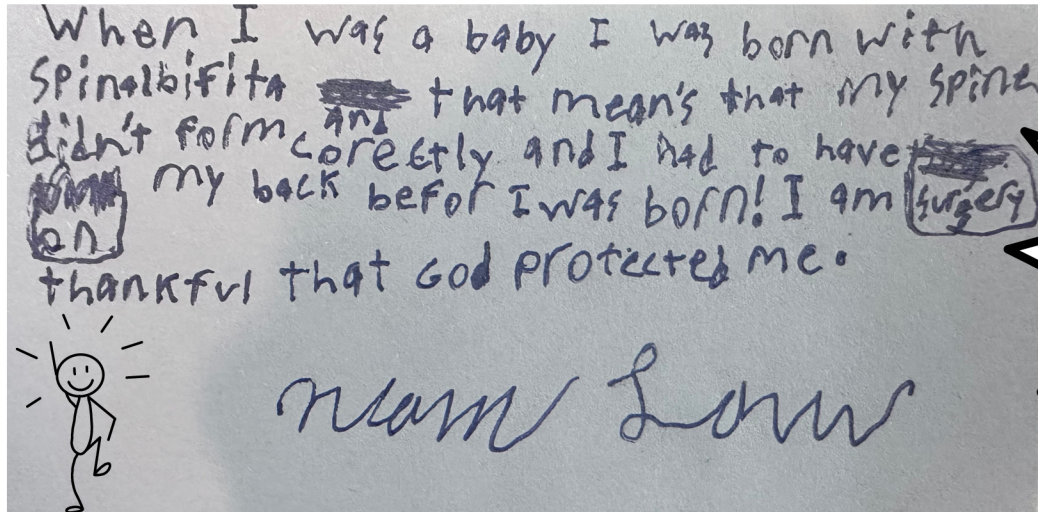 When I was a baby I was born with
Spinalbifita and that mean's that my spine
didn't form corectly and I had to have surgery
on my back befor I was born! I am
thankful that God protected me.